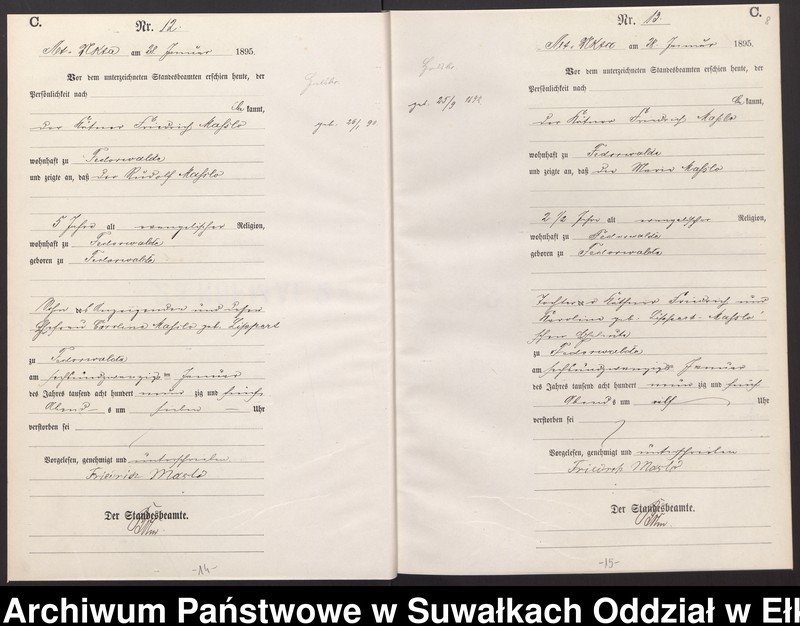 C.
Nr. 12.
Alt. Ukta am 28. Januar 1895.
Vor dem unterzeichneten Standesbeamten erschien heute, der
Persönlichkeit nach
kannt,
der Kätner Friedrich Masslo
wohnhaft zu Fedorwalde
und zeigte an, daß der Rudolf Masslo
5 Jahre alt evangelischer Religion,
wohnhaft zu Fedorwalde
geboren zu Fedorwalde
Sohn des Anzeigenden und dessen
Ehefrau Caroline Masslo geb. Lippert
zu Fedorwalde
am sechsundzwanzigsten Januar
des Jahres tausend acht hundert neunzig und fünf
Abends um sieben Uhr
verstorben sei
Vorgelesen, genehmigt und unterschrieben
Friedrich Maslo
Der Standesbeamte.
-14-
geb. 26/1 90.
C.
8
Nr. 13.
Alt. Ukta am 28 Januar 1895.
Vor dem unterzeichneten Standesbeamten erschien heute, der
Persönlichkeit nach
kannt,
der Kätner Friedrich Masslo
wohnhaft zu Fedorwalde
und zeigte an, daß die Marie Masslo
2 1/2 Jahre alt evangelischer Religion,
wohnhaft zu Fedorwalde
geboren zu Fedorwalde
Tochter des Käthner Friedrich und
Karoline geb. Lippert-Masslo'
schen Eheleute
zu Fedorwalde
am sechsundzwanzigsten Januar
des Jahres tausend acht hundert neunzig und fünf
Abends um elf Uhr
verstorben sei
Vorgelesen, genehmigt und unterschrieben
Friedrich Maslo
Der Standesbeamte.
-15-
geb. 25/9 1892
Archiwum Państwowe w Suwałkach Oddział w Ełk